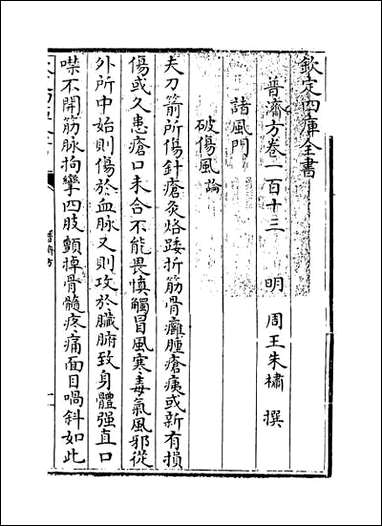 欽定四庫全書
普濟方卷一百十三
明 周王朱橚 撰
諸風門
破傷風論
夫刀箭所傷針瘡灸烙踒折筋骨癰腫瘡痍或新有損
傷或久患瘡口未合不能畏慎觸冒風寒毒氣風邪從
外所中始則傷於血脉又則攻於臟腑致身體強直口
噤不開筋脉拘攣四肢顫掉骨髓疼痛面目喎斜如此
普濟方